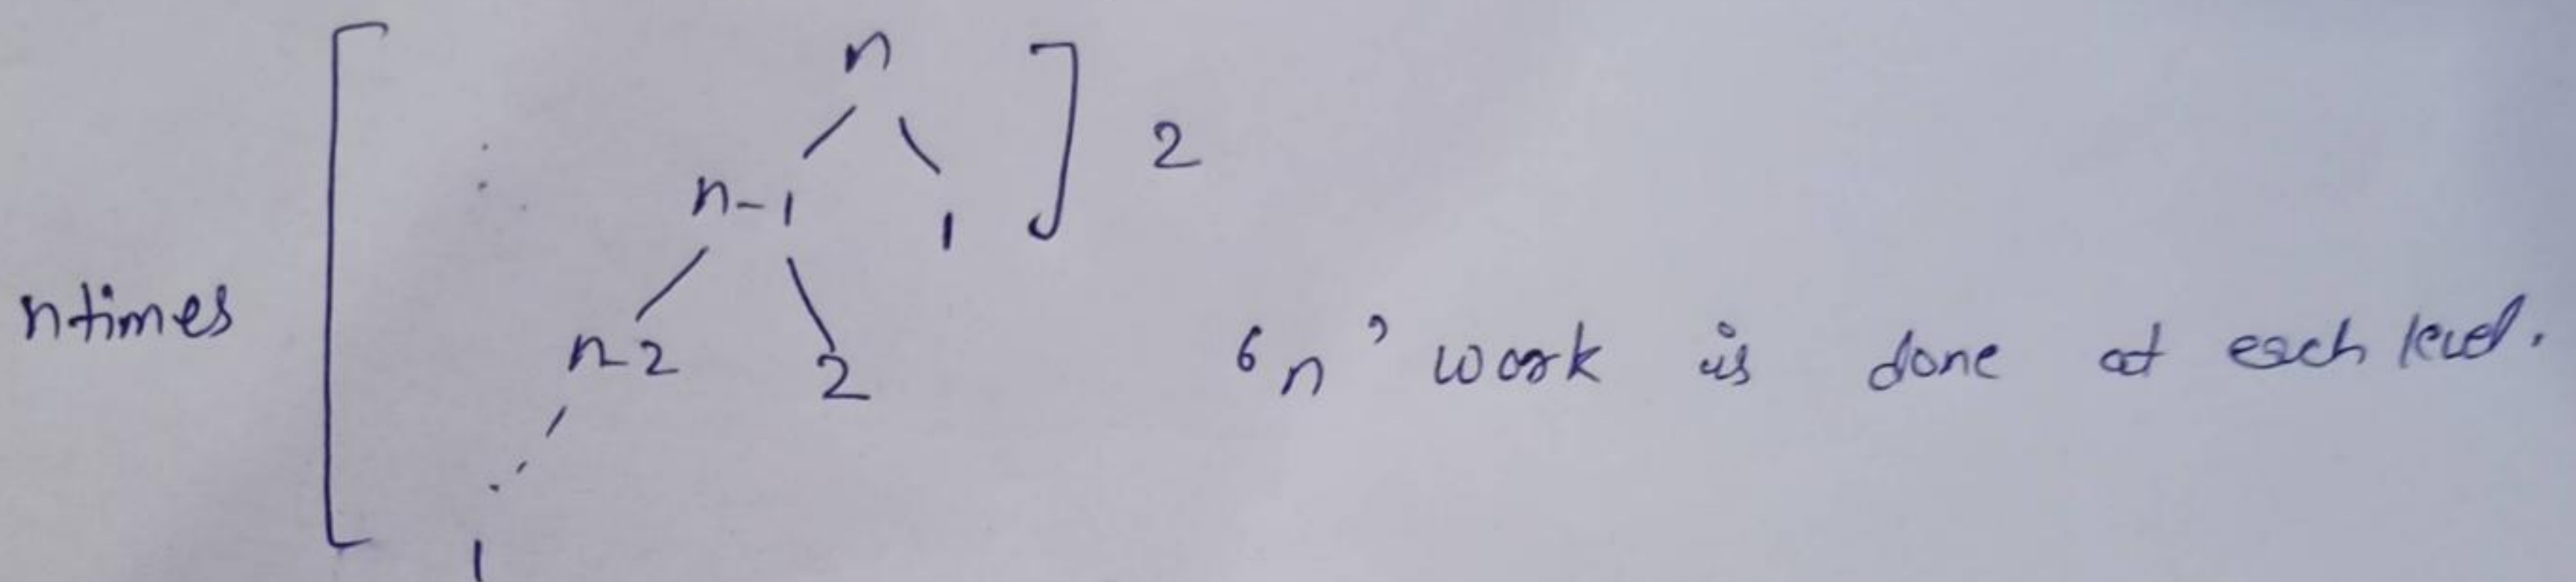 n
2
n-1
1
ntimes
n-2
2
'n' work is done at each level.
1